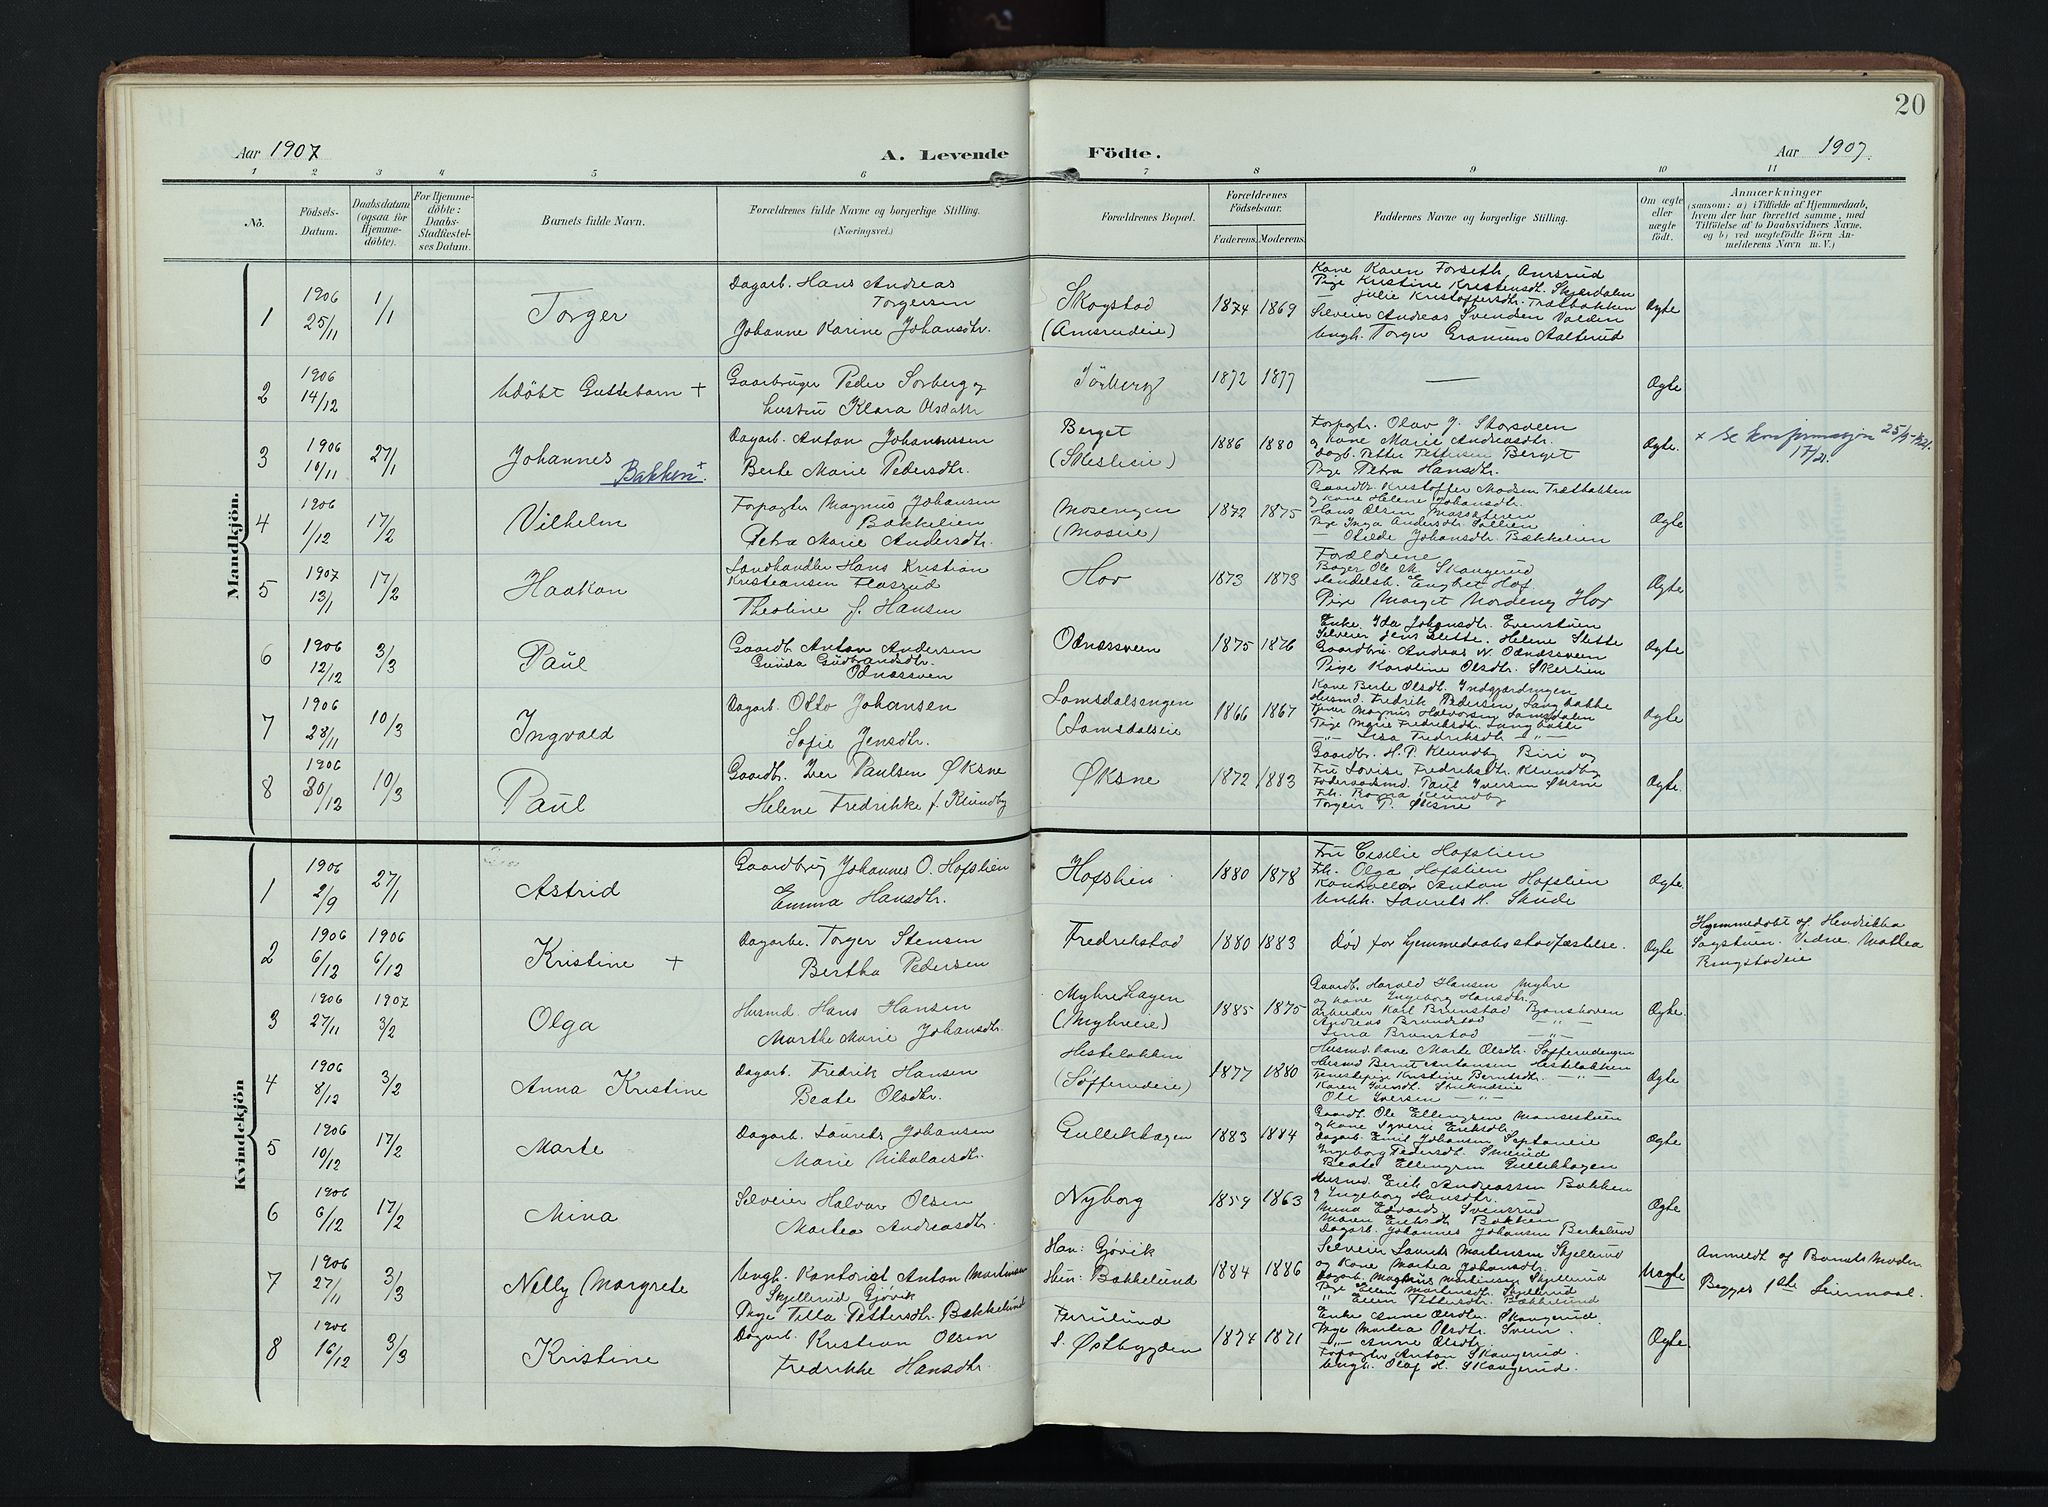 20
Aar 1907
A. Levende Födte.
Aar 1907.
1 2 3 4 5 6 7 8 9 10 11
No.
Födsels-
Datum.
Daabsdatum
(ogsaa for
Hjemme-
döbte).
For Hjemme-
döbte:
Daabs-
Stadfæstel-
ses Datum.
Barnets fulde Navn.
Forældrenes fulde Navne og borgerlige Stilling.
(Næringsvei.)
Forældrenes Bopæl.
Forældrenes
Födselsaar.
Faderens. Moderens.
Faddernes Navne og borgerlige Stilling.
Om ægte
eller
uægte
födt.
Anmærkninger
(saasom: a) i Tilfælde af Hjemmedaab,
hvem der har forrettet samme, med
Tilföielse af to Daabsvidners Navne,
og b) ved uægtefödte Börn An-
melderens Navn m. V.)
Mandkjön.
1
1906
25/11
1/1
Torger
Dagarb. Hans Andreas
Torgersen
Johanne Karine Johansdtr.
Skogstad
(Amsrudeie)
1874 1869
Kone Karen Forseth, Amsrud
Pige Kristine Kristensdtr. Skjærdalen
— Julie Kristoffersdtr. Trætbakken
Selveier Andreas Svendsen Valden
Ungk. Torger Granum Aalterud
Ægte
2
1906
14/12
Udöbt Guttebarn +
Gaarbruger Peder Sorberg og
hustru Klara Olsdatr
1872 1877
—
Ægte
3
1906
10/11
27/1
Johannes
Bakken +
Dagarb. Anton Johannessen
Berte Marie Pedersdtr.
Berget
1886 1880
Forpagtr. Olav J. Storsveen
og Kone Marie Andreasdtr.
Dagb. Petter Pettersen Berget
Pige Petra Hansdtr.
Ægte.
+ se konfirmasjon 25/9-1921.
17/21.
4
1906
1/12
17/2
Vilhelm
Forpagter Magnus Johansen
Bækkelien
Petra Marie Andersdtr.
Mosengen
(Moseie)
1872 1875
Gaardb. Kristoffer Madsen Trætbakken
og Kone Helene Johansdtr.
Hans Olsen Mossæteren
Pige Inga Andersdtr. Sollien
— Otilde Johansdtr. Bækkelien
Ægte
5
1907
13/1
17/2
Haakon
Landhandler Hans Kristian
Kristiansen Flasrud
Theoline f. Hansen
Hov
1873 1873
Forældrene
Bager Ole M. Skangerud
Handelsb. Engbret Hof.
Pige Margit Nordeng Hov
Ægte
6
1906
12/12
3/3
Paul
Gaardb. Anton Andersen
Gunda Gudbrandsdtr.
Odnæssven
Odnæssveen
1875 1876
Enke Ida Johansdtr. Evenstuen
Selveier Jens Slette. Helene Slette
Gaardbru. Andreas N. Odnæssveen
Pige Karoline Olsdtr. Skartlien
Ægte
7
1906
28/11
10/3
Ingvald
Dagarb. Otto Johansen
Sofie Jensdtr.
Lomsdalsengen
(Lomsdalseie
1866 1867
Kone Berte Olsdtr. Indgjærdingen
Husmd. Fredrik Pedersen Langbakke
Tjener Magnus Halvorsen Lomsdalen
Pige Marie Fredriksdtr. Langbakke
—"— Lisa Fredriksdtr —"—
Ægte
8
1906
30/12
10/3
Paul
Gaardbr. Iver Paulsen Øksne
Helene Fredrikke f. Klundby
Øksne
1872 1883
Gaardbr. H. P. Klundby Biri og
Fru Lovise Fredriksdtr. Klundby
Föderaadsmd. Paul Iversen Øksne
Frk. Ragna Klundby
Torgeir P. Øksne
Ægte.
Kvindekjön
1
1906
2/9
27/1
Astrid
Gaardbrug Johannes O. Hofslien
Emma Hansdtr.
Hofslien
1880 1878
Fru Cesilie Hofslien
Frk. Olga Hofslien
Kontrolør Anton Hofslien
Unkk. Laurits H. Skude
Ægte
2
1906
6/12
1906
6/12
Kristine +
Dagarbe. Torger Stensen
Bertha Pedersen
Fredrikstad
1880 1883
Død før hjemmedaabsstadfæstelse.
Ægte
Hjemmedøbt af Hendrikka
Sagstuen. Vidne Mathea
Ringstadeie
3
1906
27/11
1907
3/2
Olga
Husmd. Hans Hansen
Marthe Marie Johansdtr.
Myhrehagen
(Myhreeie)
1885 1875
Gaardb. Harald Hansen Myhre
og Kone Ingeborg Hansdtr.
Arbeider Karl Brunstad Bjonshoven
Andreas Brunstad —"—
Lina Brunstad —"—
Ægte.
4
1906
8/12
3/2
Anna Kristine
Dagarb. Fredrik Hansen
Beate Olsdtr.
Hesteløkken
(Søfferudeie)
1877 1880
Husmd. kone Marte Olsdtr. Søfferudengen
Husmd Bernt Antonsen Hesteløkken
Tjenestepige Kristine Berntsdtr. —"—
Ole Iversen —"—
Ægte
5
1906
10/12
17/2
Marte
Dagarb. Laurits Johansen
Marie Nikolaisdtr.
Gullikhagen
1883 1884
Gaardb. Ole Ellingsen Mansestuen
og Kone Syverie Eriksdtr.
Dagarb. Emil Johansen
Ingeborg Pedersdtr. Smerud
Beate Ellingsen Gullikhagen
Ægte
6
1906
6/12
17/2
Mina
Selveier Halvor Olsen
Martea Andreasdtr.
Nyborg
1859 1863
Husmd. Erik Andreassen Bakken
og Ingeborg Hansdtr.
Mina Edvards. Svensrud
Maren Eriksdtr Bakken
Dagarb. Johannes Johansen Berkelund
Ægte
7
1906
27/11
3/3
Nelly Margrete
Ungk. Kontorist Anton Martinsen
Skjellerud Gjøvik
Pige Tilla Pettersdtr. Bækkelund
Han: Gjøvik
Hun: Bakkelund
1884 1886
Selveier Laurits Martensen Skjellerud
og Kone Martea Johansdtr.
Dagarb. Magnus Martinsen Skjellerud
Pige Ellen Martensdtr. Skjellerud
" Ellen Pettersdtr. Bækkelund
Uægte
Anmeldt af Barnets Moder
Begges 1ste Leiermaal.
8
1906
16/12
3/3
Kristine
Dagarb. Kristian Olsen
Fredrikke Hansdtr.
Furulund
s. Østbygden
1874 1871
Enke Anne Olsdtr. Skangerud.
Pige Martea Olsdtr. Sveen.
—"— Anne Olsdtr.
Forpagter Anton Skangerud.
Ungk. Olaf H. Skangerud.
Ægte